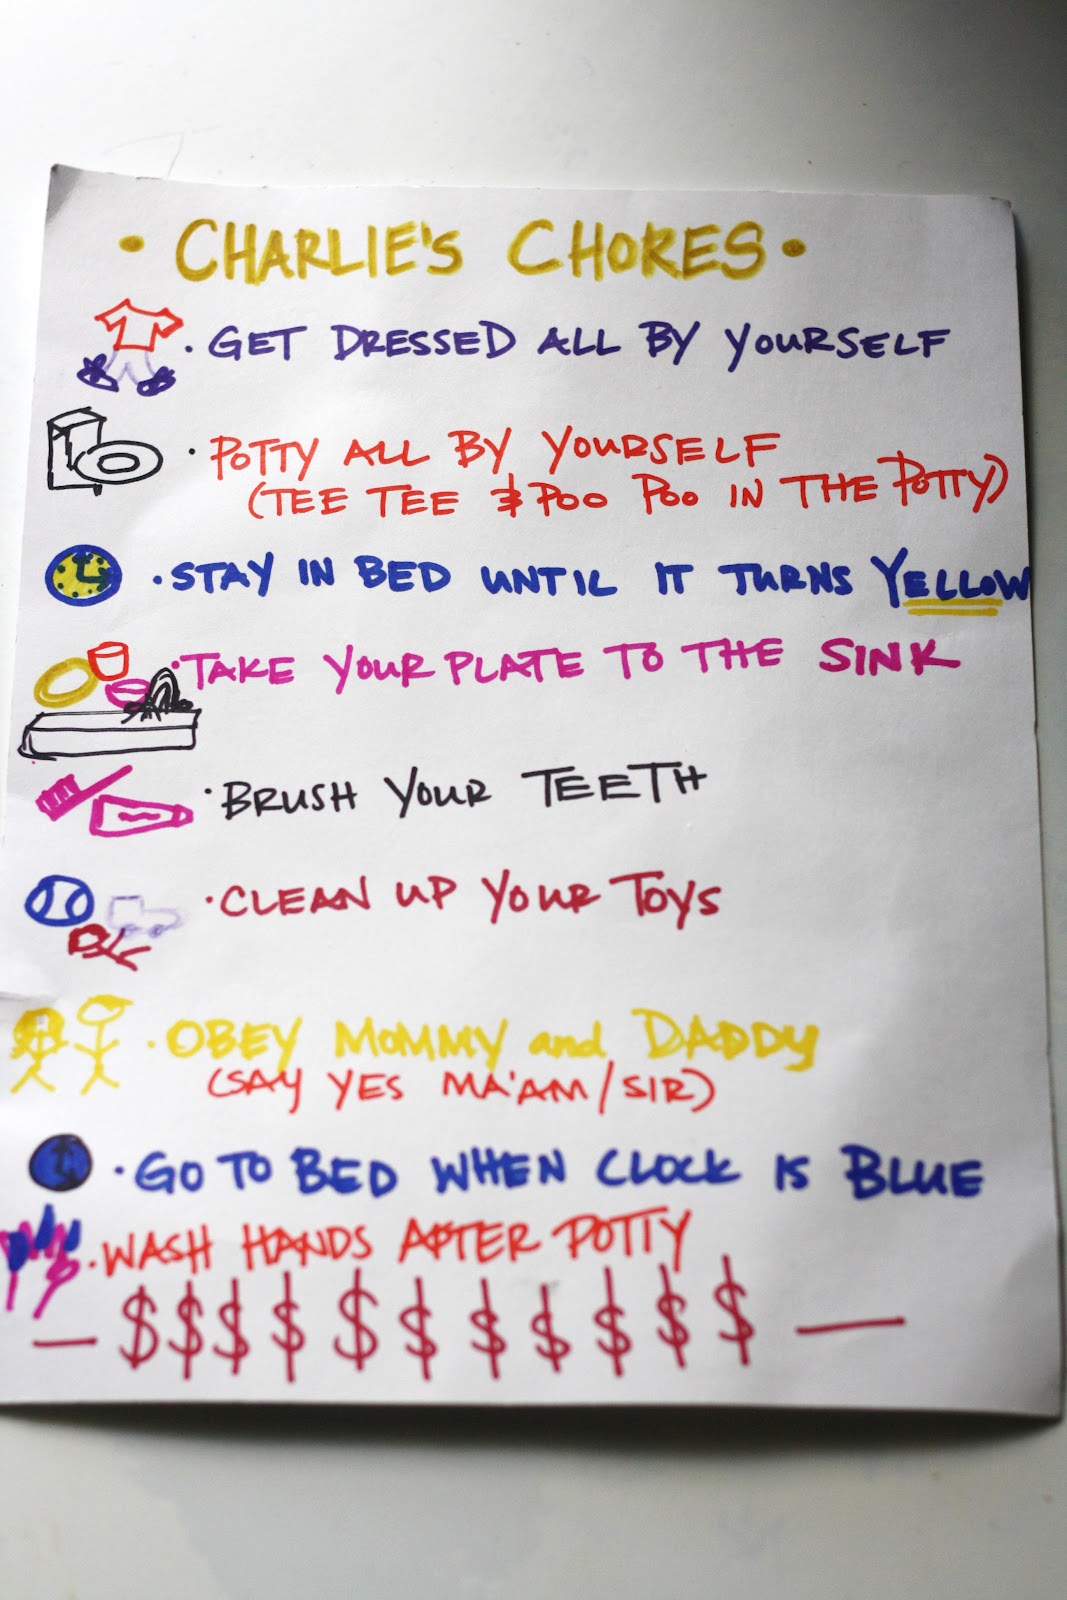 • CHARLIE'S CHORES •
• GET DRESSED ALL BY YOURSELF
• POTTY ALL BY YOURSELF
(TEE TEE & POO POO IN THE POTTY)
• STAY IN BED UNTIL IT TURNS YELLOW
• TAKE YOUR PLATE TO THE SINK
• BRUSH YOUR TEETH
• CLEAN UP YOUR TOYS
• OBEY MOMMY and DADDY
(SAY YES MA'AM/SIR)
• GO TO BED WHEN CLOCK IS BLUE
• WASH HANDS AFTER POTTY
— $ $ $ $ $ $ $ $ $ $ $ —